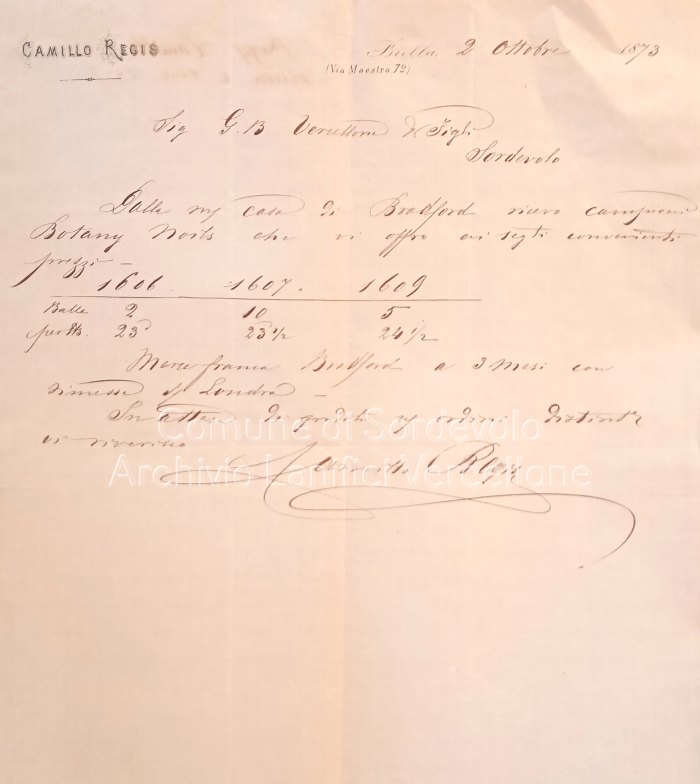 CAMILLO REGIS
Biella 2 Ottobre 1873
(Via Maestra 72)
Sig G. B Vercellone & Figli
Sordevolo
Dalla mj casa di Bradford ricevo campioni
Botany Noils che vi offro ai segti convenienti
prezzi –
1606. 1607. 1609
Balle 2 10 5
23d 23 1/2 24 1/2
Merce franca Bradford a 3 mesi con
rimessa s/ Londra –
In attesa di graditi vj ordini distinte
vi riverisco
Camillo Regis
Comune di Sordevolo
Archivio Lanifici Vercellone